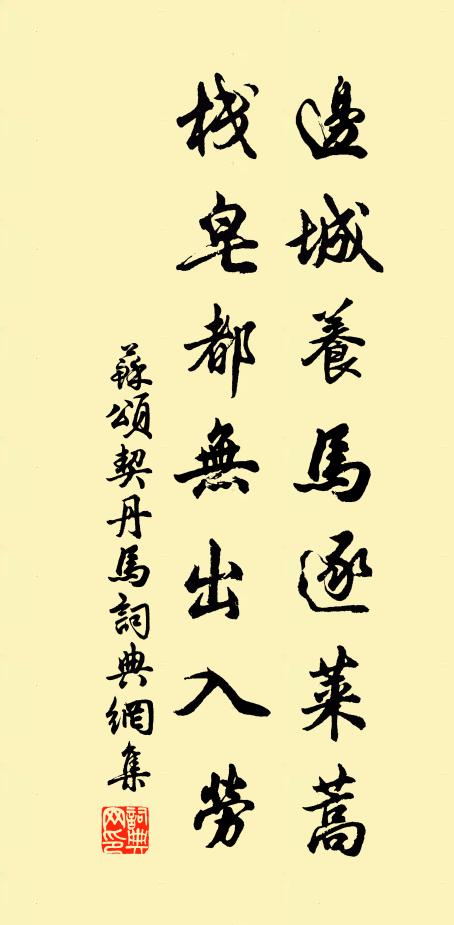 邊城養馬逐萊蒿
棧皂都無出入勞
蘇頌契丹馬詞典網集
詞典网印